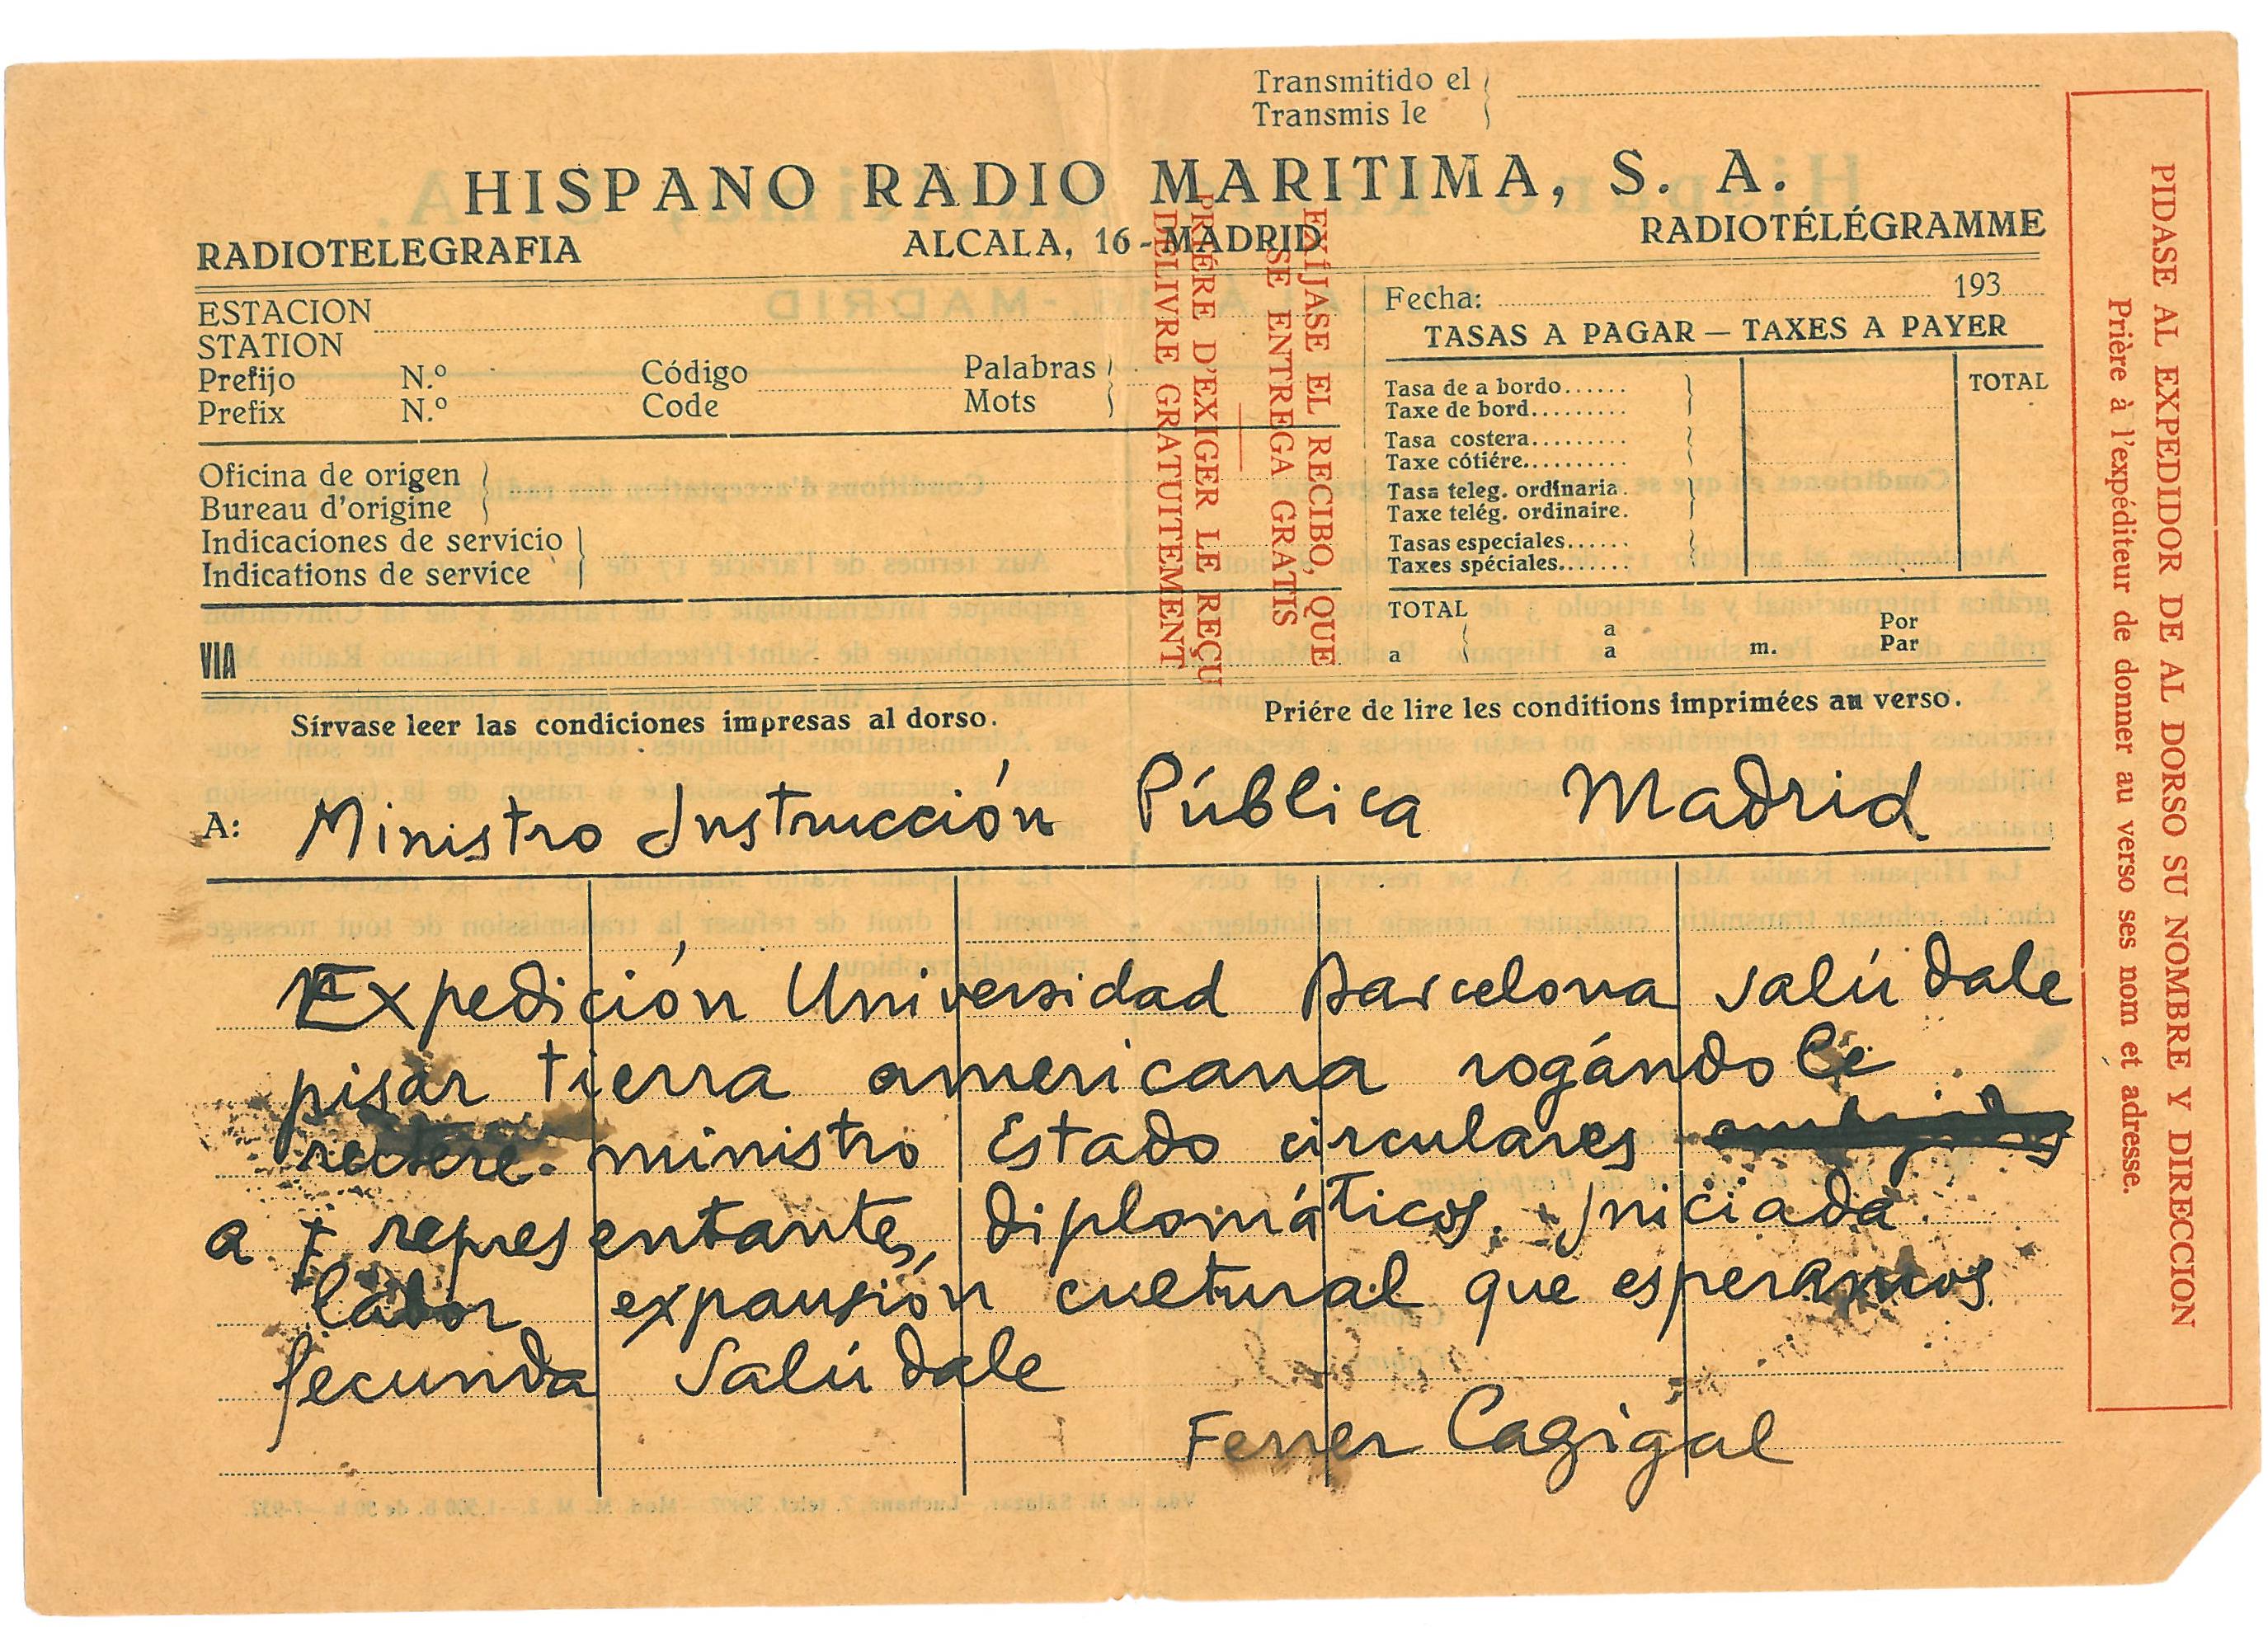 Transmitido el
Transmis le
HISPANO RADIO MARITIMA, S. A.
RADIOTELEGRAFIA
ALCALA, 16 - MADRID
RADIOTÉLÉGRAMME
ESTACION
STATION
Prefijo N.º Código Palabras
Prefix N.º Code Mots
Oficina de origen
Bureau d'origine
Indicaciones de servicio
Indications de service
VIA
EXÍJASE EL RECIBO, QUE
SE ENTREGA GRATIS
PRIÉRE D'EXIGER LE REÇU
DELIVRE GRATUITEMENT
Fecha: 193
TASAS A PAGAR — TAXES A PAYER
TOTAL
Tasa de a bordo......
Taxe de bord.........
Tasa costera.........
Taxe cótiére..........
Tasa teleg. ordinaria.
Taxe telég. ordinaire.
Tasas especiales......
Taxes spéciales.......
TOTAL
a a m. Por
a Par
Sírvase leer las condiciones impresas al dorso.
Priére de lire les conditions imprimées au verso.
A: Ministro Instrucción Pública Madrid
Expedición Universidad Barcelona salúdale
pisar tierra americana rogándole
ministro Estado circulares
a representantes diplomáticos. Iniciada
labor expansión cultural que esperamos
fecunda Salúdale
Ferrer Cagigal
PIDASE AL EXPEDIDOR DE AL DORSO SU NOMBRE Y DIRECCION
Prière à l'expéditeur de donner au verso ses nom et adresse.